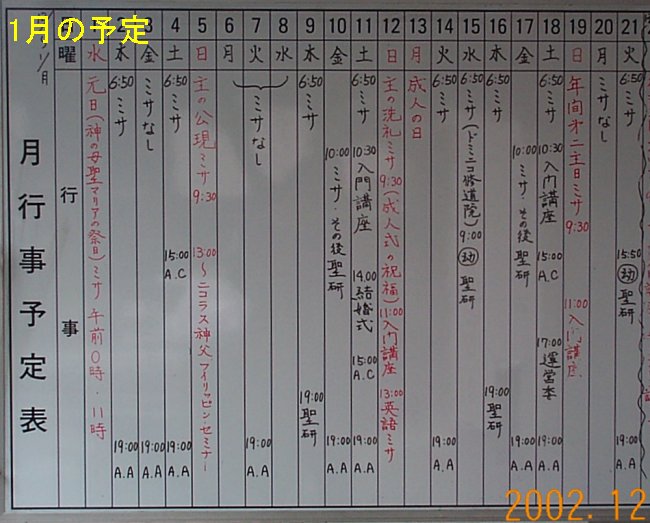 1月の予定
月行事予定表
曜
行事
1
水
元日(神の母聖マリアの祭日)ミサ 午前0時・11時
2
木
6:50 ミサ
19:00 A.A
3
金
ミサなし
19:00 A.A
4
土
6:50 ミサ
15:00 A.C
19:00 A.A
5
日
主の公現ミサ 9:30
13:00~ニコラス神父フィリッピン・セミナー
6
月
7
火
ミサなし
19:00 A.A
8
水
9
木
6:50 ミサ
19:00 聖研
10
金
10:00 ミサ・その後 聖研
19:00 A.A
11
土
6:50 ミサ
10:30 入門講座
14:00 結婚式
15:00 A.C
19:00 A.A
12
日
主の洗礼ミサ 9:30(成人式の祝福)
11:00 入門講座
13:00 英語ミサ
13
月
成人の日
14
火
6:50 ミサ
19:00 A.A
15
水
6:50 ミサ(ドミニコ修道院)
9:00 聖研
16
木
6:50 ミサ
19:00 聖研
17
金
10:00 ミサ・その後 聖研
19:00 A.A
18
土
6:50 ミサ
10:30 入門講座
15:00 A.C
17:00 運営委
19:00 A.A
19
日
年間第二主日ミサ 9:30
11:00 入門講座
20
月
ミサなし
21
火
6:50 ミサ
15:50 聖研
19:00 A.A
2002.12